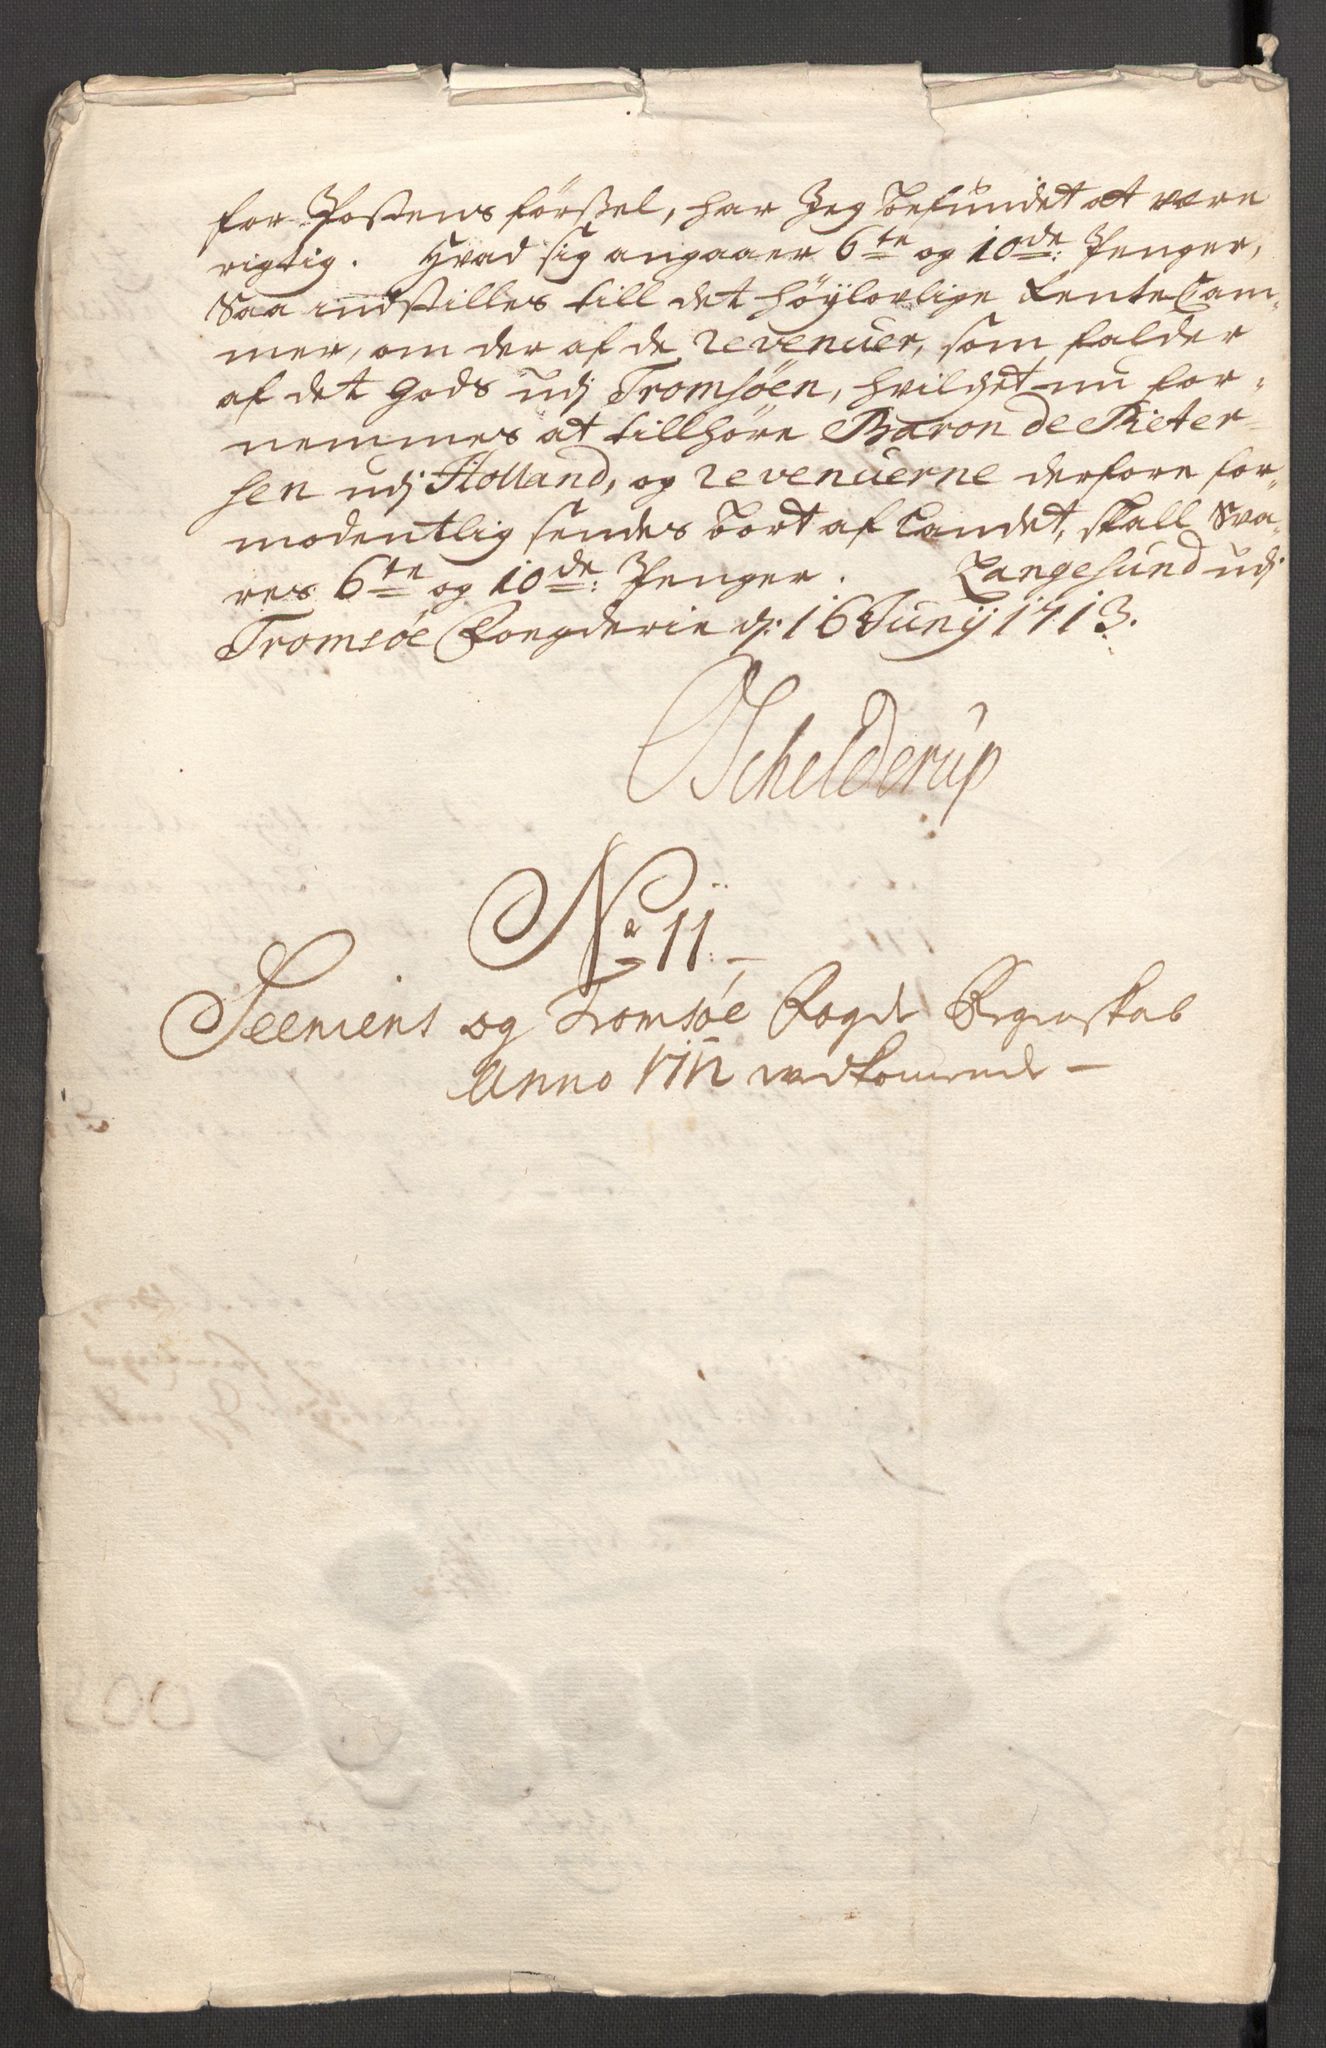 for Postens förßel, har Jeg befundet at være
rigtig. Hvad sig angaaer 6te og 10de: Penger,
Saa indstilles till det höÿlovlige RenteCam-
mer, om der af de revenuer, som falder
af det gods udj Tromsöen, hvilchet nu for-
nemmes at tillhöre Baron de Pieter-
sen udj Holland, og revenuerne derfore for-
modentlig sendes bort af Landet, skall Sva-
res 6te og 10de: Penger. Langesund udj
Tromsøe Fogderie d: 16 Junÿ 1713.
Schelderup
No 11
Senniens og Tromsøe Fogde Regenskab
Anno 1712 vedkommende